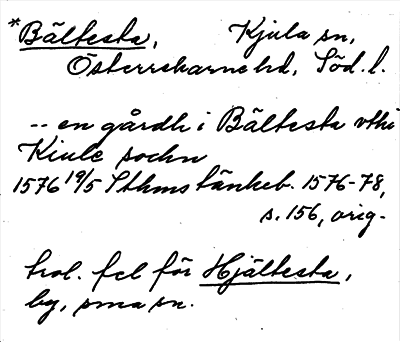 *Bältesta, Kjula sn,
Österrekarne hd, Söd. l.
-- en gårdh i Bältesta vthi
Kiule sochn
1576 19/5 Sthms tänkeb. 1576-78,
s. 156, orig.
trol. fel för Hjältesta,
by, sma sn.